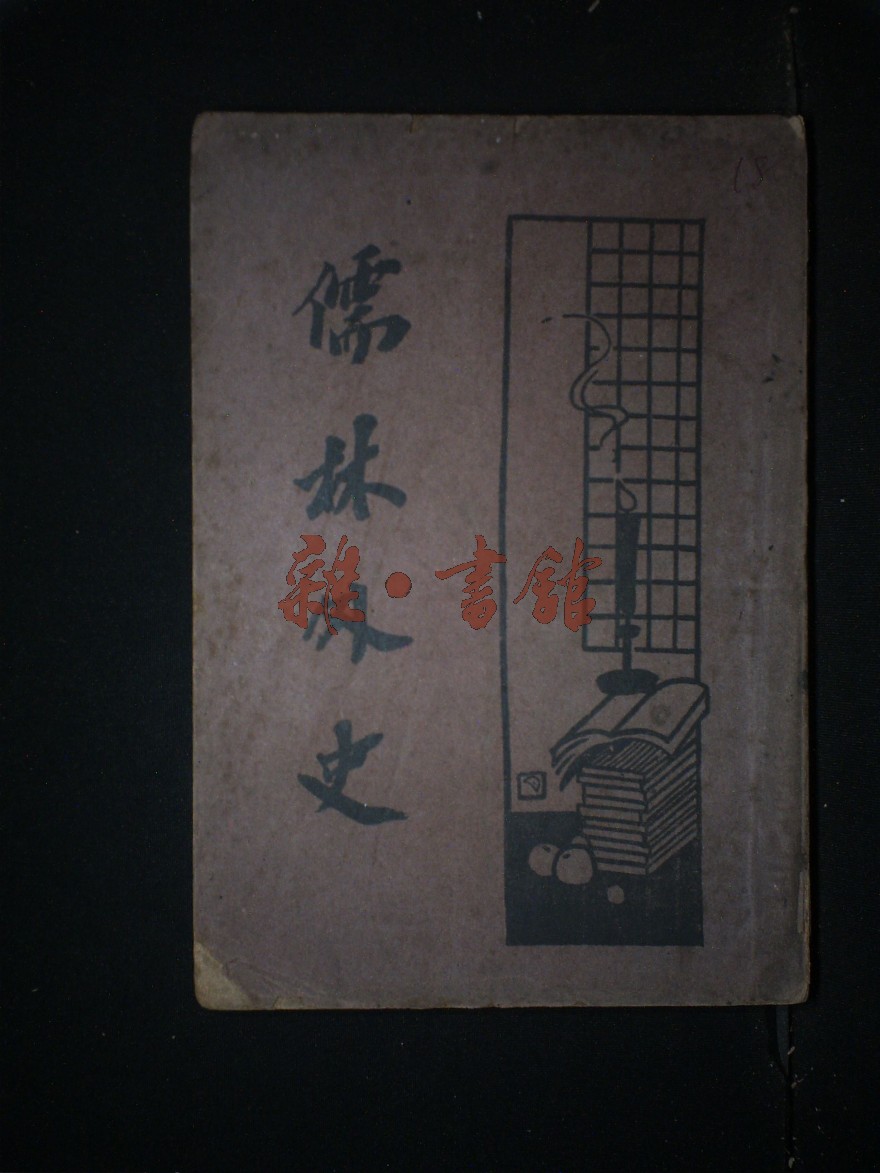 儒林史
雜·書館